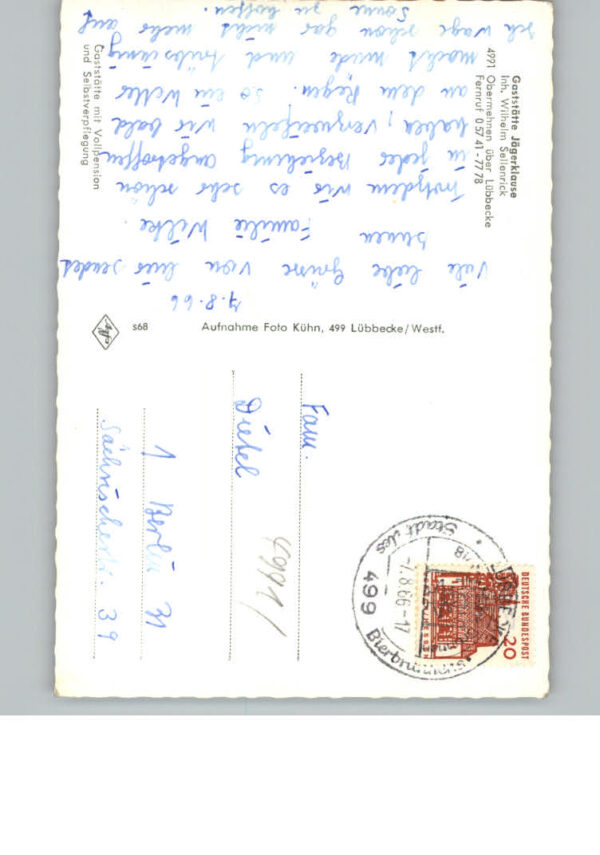 Gaststätte Jägerklause
Inh. Wilhelm Sellenrick
4991 Obermehnen über Lübbecke
Fernruf 0 57 41 - 77 78
Gaststätte mit Vollpension
und Selbstverpflegung
7.8.66
Viele liebe Grüsse von hier sendet
Ihnen Familie Welke.
Trotzdem wir es sehr schön
in jeder Beziehung angetroffen
haben, verzweifeln wir bald
an dem Regen. So ein Wetter
macht müde und trübsinnig
Ich wage schon gar nicht mehr auf
Sonne zu hoffen.
s68
Aufnahme Foto Kühn, 499 Lübbecke/Westf.
Fam.
Dietel
1 Berlin 31
Sächsischestr. 39
4991
DEUTSCHE BUNDESPOST
20
499
-7.8.66-17
Stadt des
Bierbrunnens